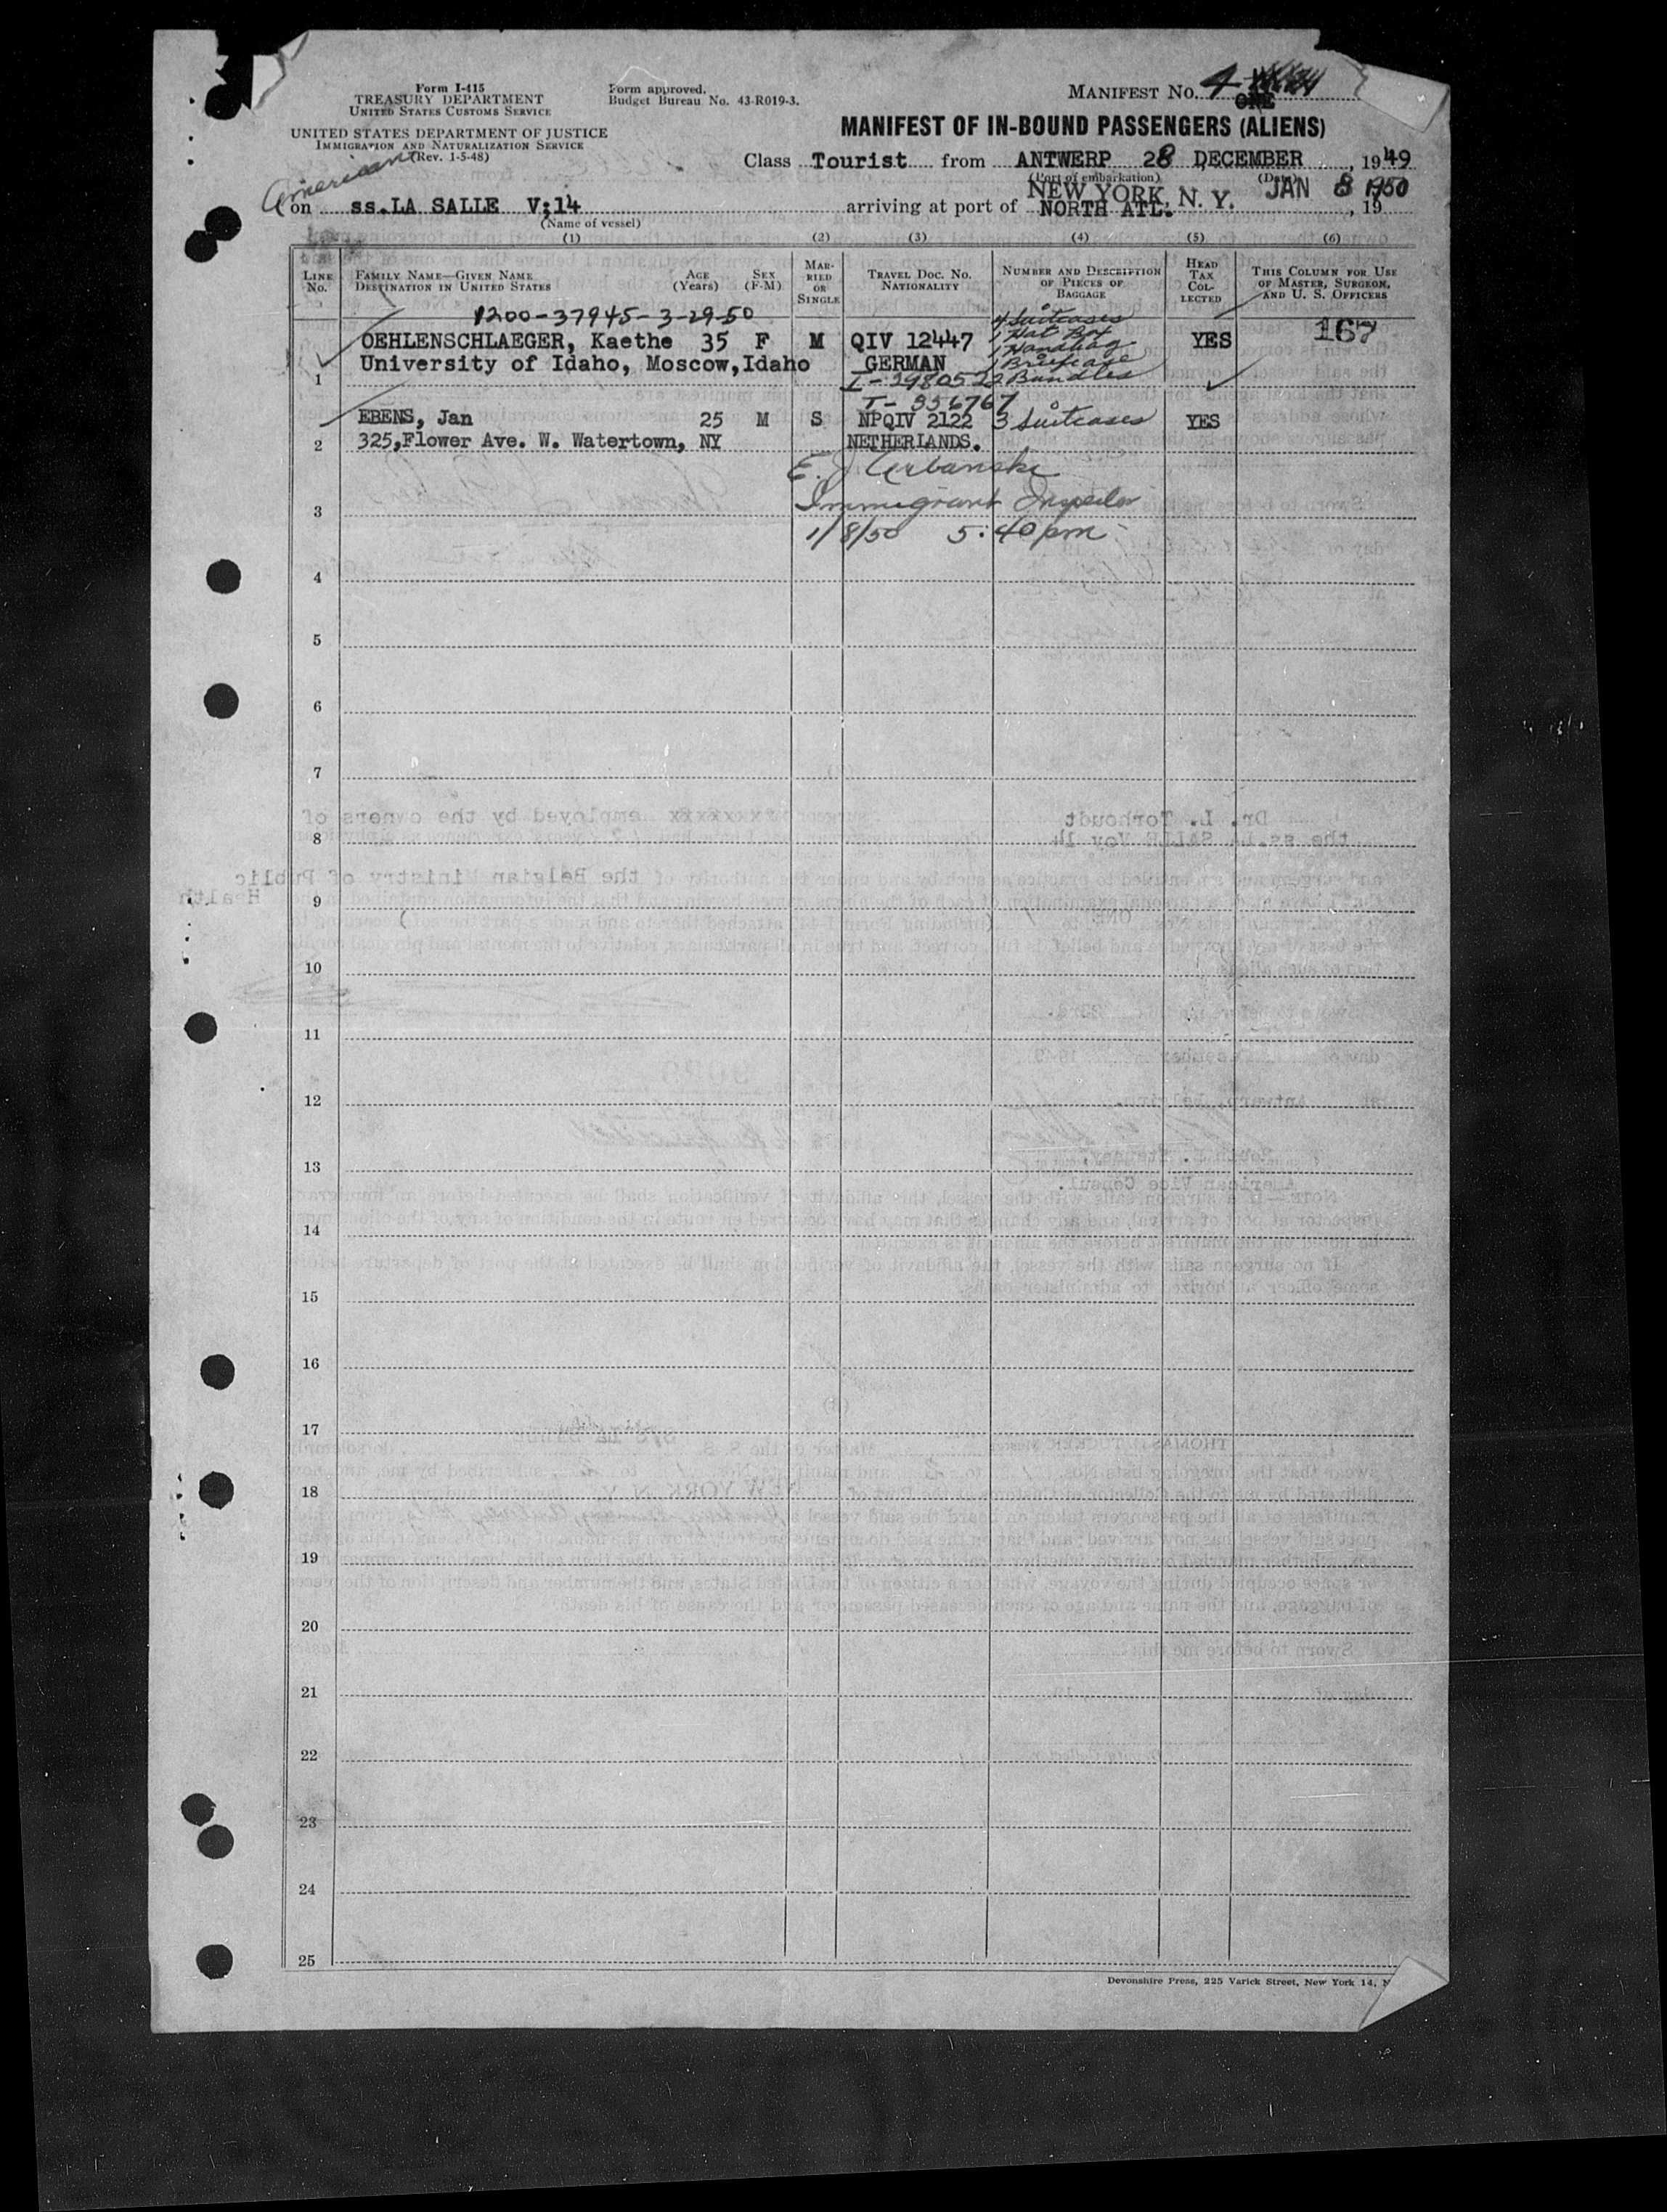 Form I-415
TREASURY DEPARTMENT
UNITED STATES CUSTOMS SERVICE
UNITED STATES DEPARTMENT OF JUSTICE
IMMIGRATION AND NATURALIZATION SERVICE
(Rev. 1-5-48)
Form approved.
Budget Bureau No. 43-R019-3.
MANIFEST No. 4
ONE
MANIFEST OF IN-BOUND PASSENGERS (ALIENS)
Class Tourist from ANTWERP 28 DECEMBER, 1949
(Port of embarkation) (Date)
American
on ss.LA SALLE V;14 arriving at port of NEW YORK, N. Y. JAN 8 1950
NORTH ATL. , 19
(Name of vessel)
(1) (2) (3) (4) (5) (6)
LINE No.
FAMILY NAME—GIVEN NAME
DESTINATION IN UNITED STATES
AGE (Years)
SEX (F-M)
MARRIED OR SINGLE
TRAVEL DOC. NO. NATIONALITY
NUMBER AND DESCRIPTION OF PIECES OF BAGGAGE
HEAD TAX COLLECTED
THIS COLUMN FOR USE OF MASTER, SURGEON, AND U. S. OFFICERS
1200-37945-3-29-50
4 Suitcases
1 Hat Box
OEHLENSCHLAEGER, Kaethe 35 F M QIV 12447 YES 167
1 Handbag
University of Idaho, Moscow,Idaho GERMAN 1 Briefcase
1 I-2980522 Bundles
I- 356767
EBENS, Jan 25 M S NPQIV 2122 3 Suitcases YES
2 325,Flower Ave. W. Watertown, NY NETHERLANDS.
E. J. Urbanski
3 Immigrant Inspector
1/8/50 5:40 pm
4
5
6
7
8
9
10
11
12
13
14
15
16
17
18
19
20
21
22
23
24
25
Devonshire Press, 225 Varick Street, New York 14, N